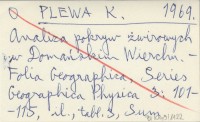 PLEWA K. 1969.
Analiza pokryw żwirowych
w Domańskim Wierchu. -
Folia Geographica, Series
Geographica Physica 3: 101-
-115, il., tabl. 3, Sum.